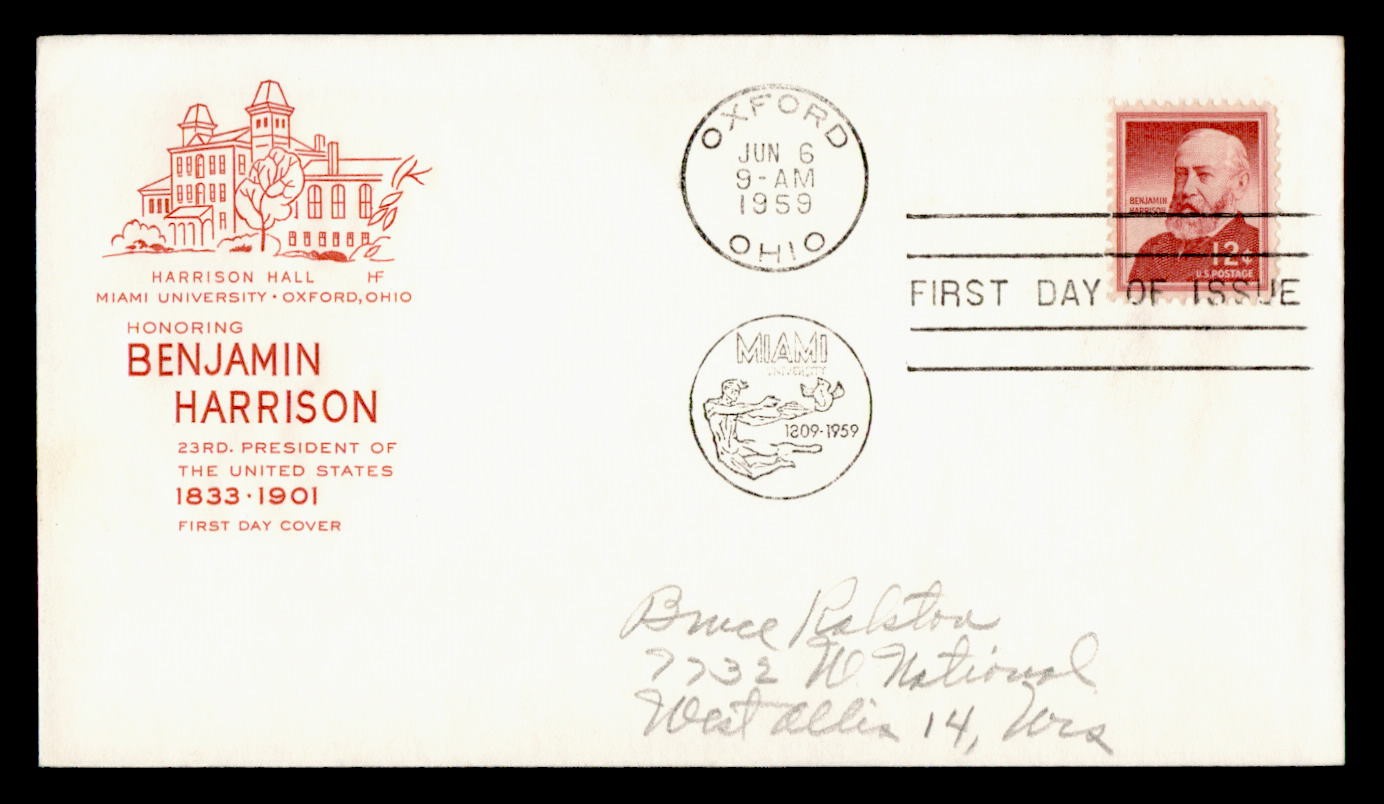 HARRISON HALL HF
MIAMI UNIVERSITY · OXFORD, OHIO
HONORING
BENJAMIN
HARRISON
23RD. PRESIDENT OF
THE UNITED STATES
1833 · 1901
FIRST DAY COVER
OXFORD
JUN 6
9-AM
1959
OHIO
BENJAMIN
HARRISON
12¢
U.S. POSTAGE
FIRST DAY OF ISSUE
MIAMI
UNIVERSITY
1809-1959
Bruce Ralston
7732 W. National
West Allis 14, Wis